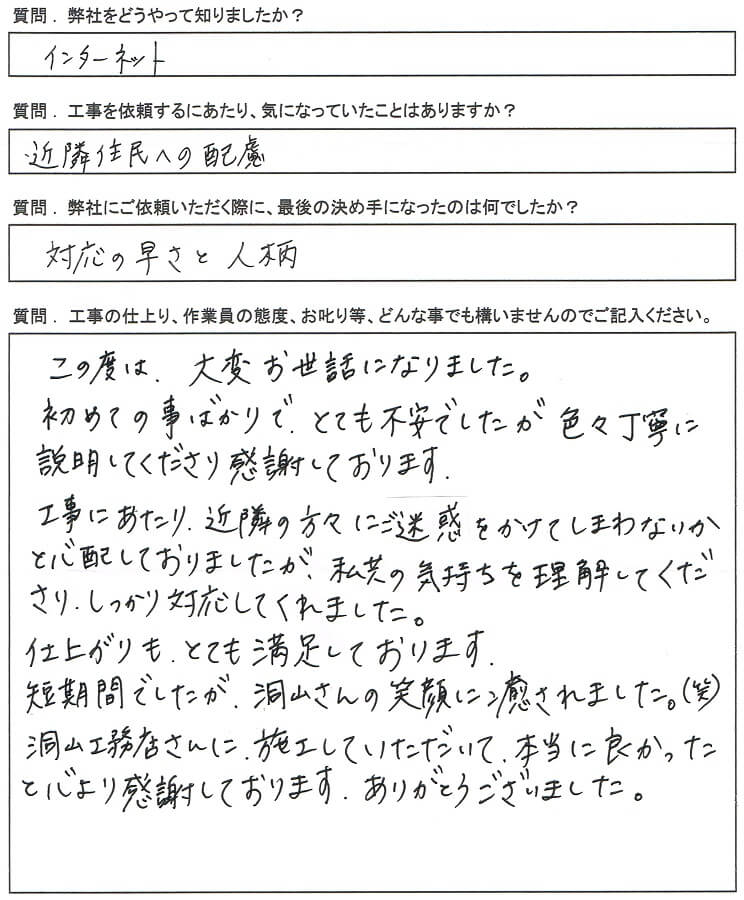 質問．弊社をどうやって知りましたか？
インターネット
質問．工事を依頼するにあたり、気になっていたことはありますか？
近隣住民への配慮
質問．弊社にご依頼いただく際に、最後の決め手になったのは何でしたか？
対応の早さと人柄
質問．工事の仕上り、作業員の態度、お叱り等、どんな事でも構いませんのでご記入ください。
この度は、大変お世話になりました。
初めての事ばかりで、とても不安でしたが色々丁寧に
説明してくださり感謝しております。
工事にあたり、近隣の方々にご迷惑をかけてしまわないか
と心配しておりましたが、私共の気持ちを理解してくだ
さり、しっかり対応してくれました。
仕上がりも、とても満足しております。
短期間でしたが、洞山さんの笑顔に癒されました。(笑)
洞山工務店さんに、施工していただいて、本当に良かった
と心より感謝しております。ありがとうございました。